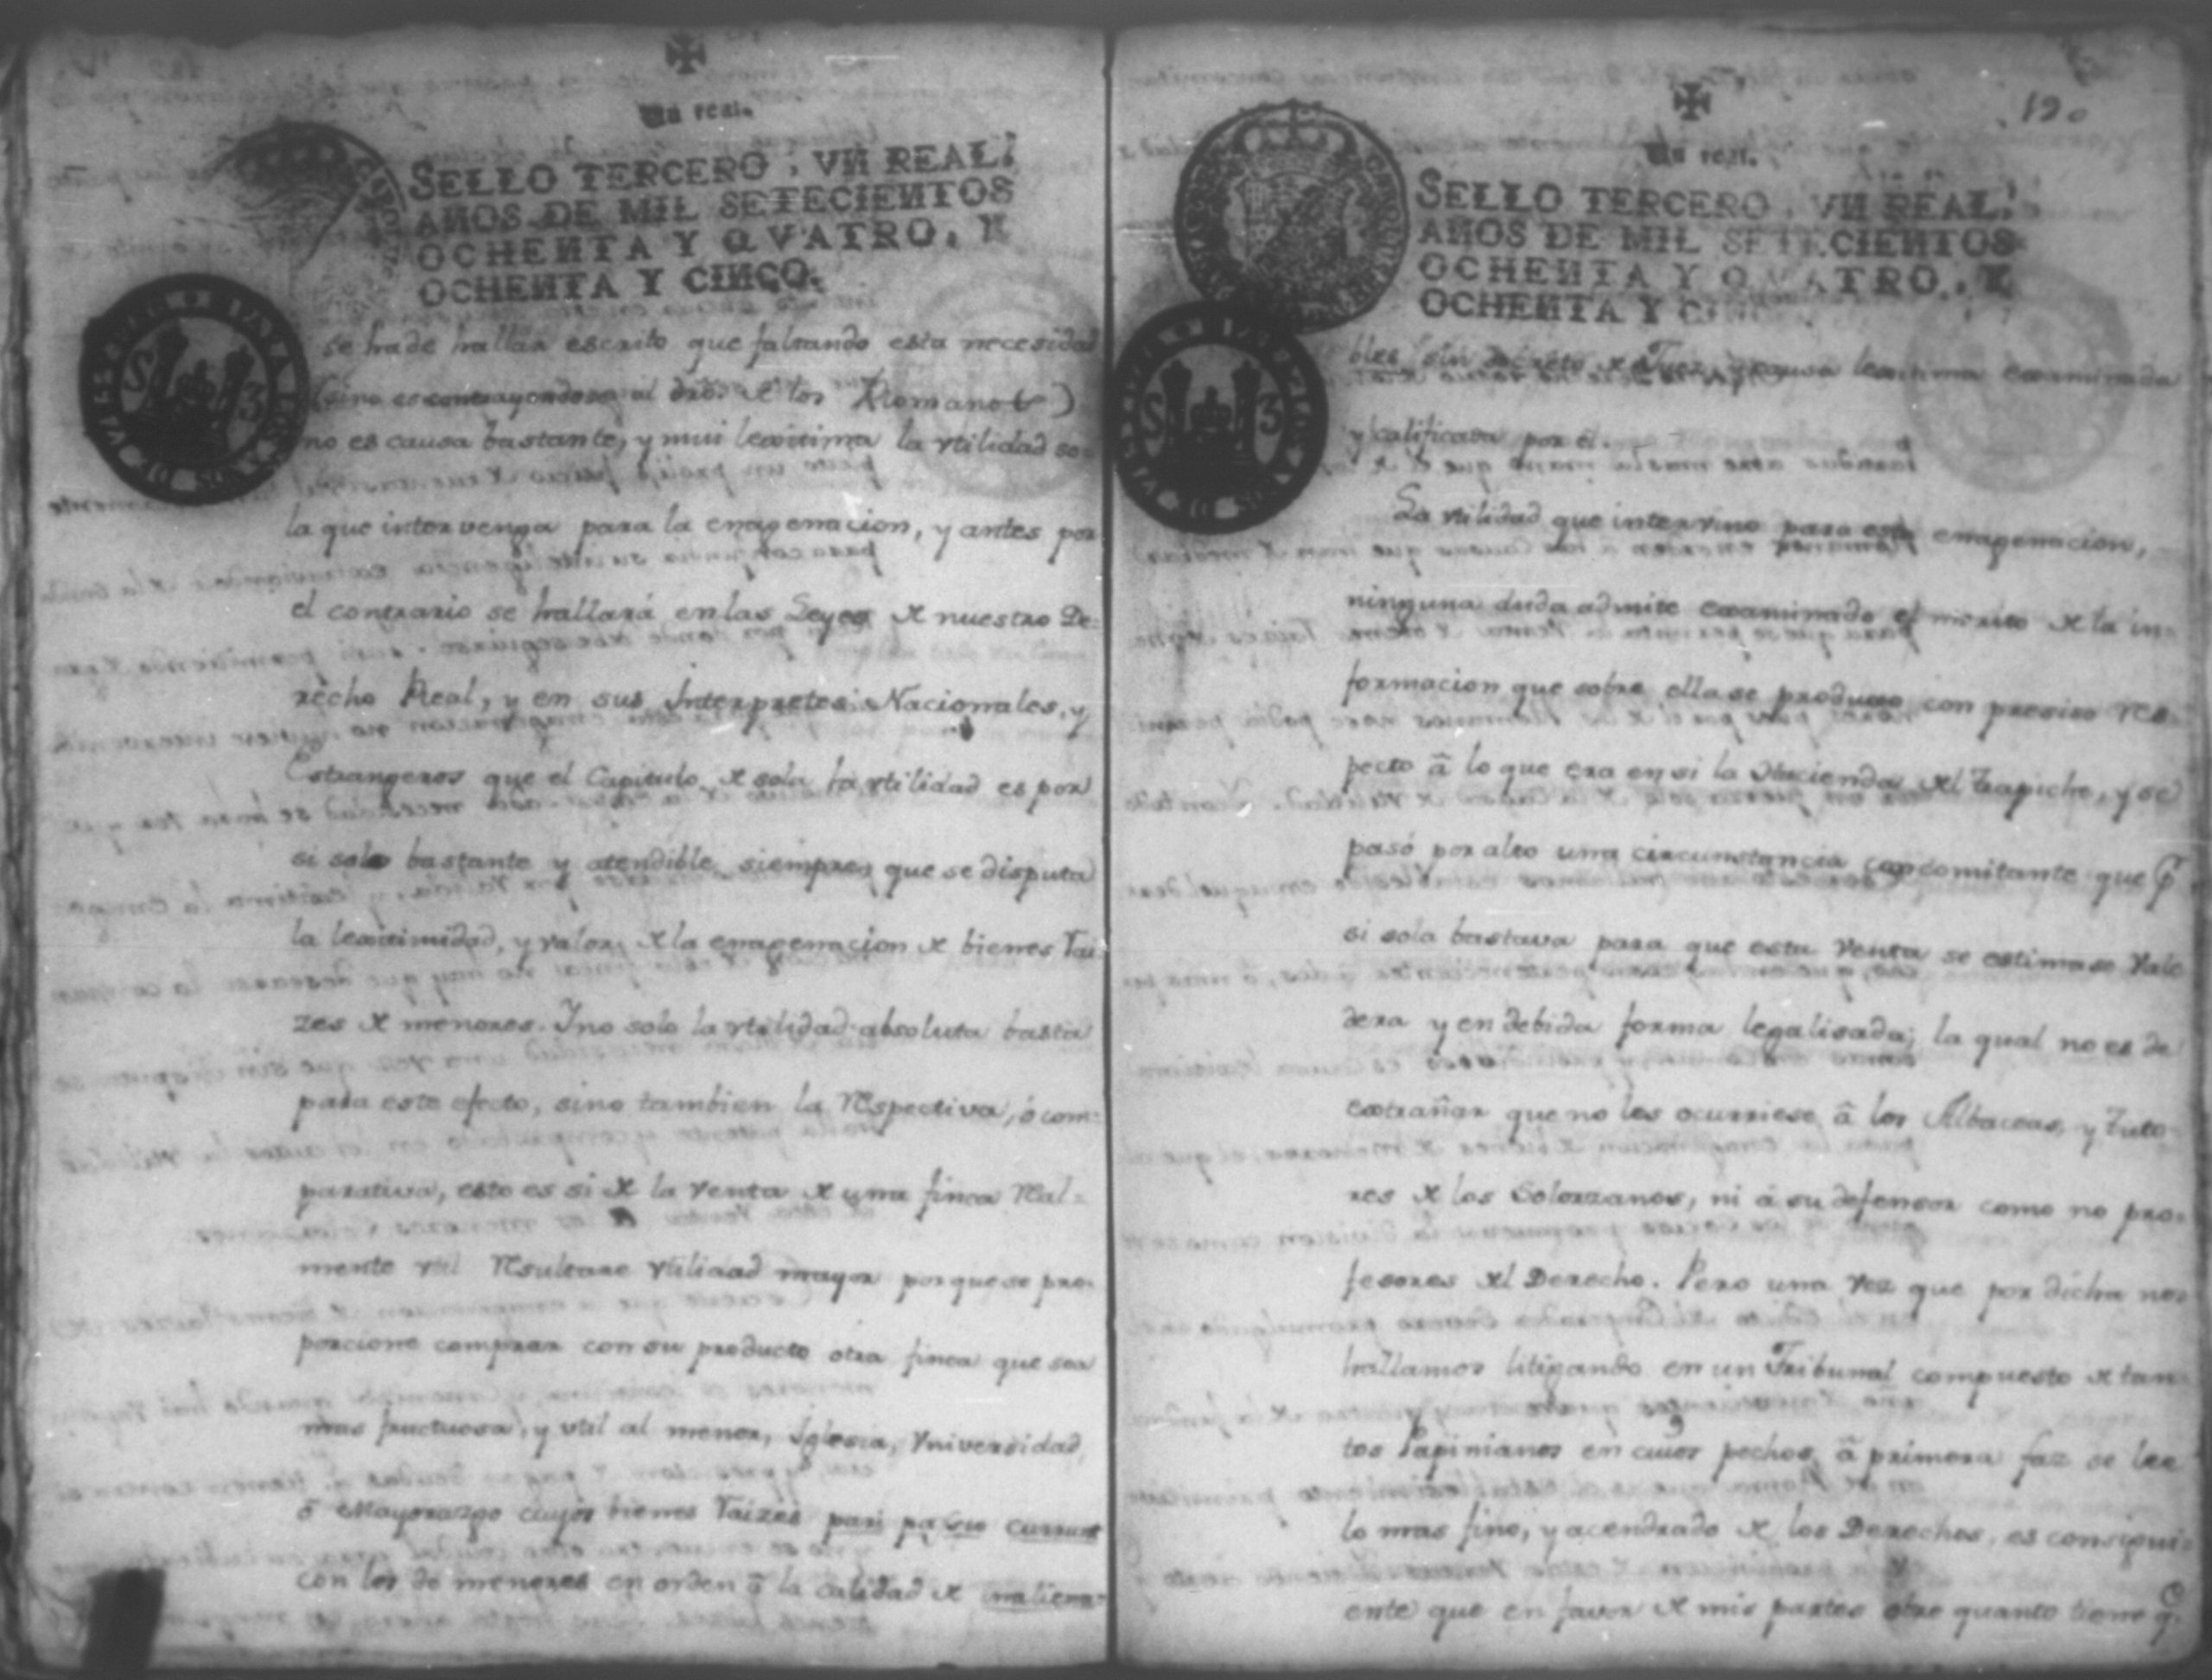 Un real.
SELLO TERCERO, VN REAL,
AÑOS DE MIL SETECIENTOS
OCHENTA Y QVATRO, Y
OCHENTA Y CINCO.
se ha de hallar escrito que faltando esta necesidad
(sino es contrayendose al dro. de los Romanos)
no es causa bastante, y mui lexitima la vtilidad so-
la que intervenga para la enagenacion, y antes por
el contrario se hallará en las Leyes de nuestro De-
recho Real, y en sus Interpretes Nacionales, y
Estrangeros que el Capitulo de sola la vtilidad es por
si solo bastante y atendible siempre que se disputa
la lexitimidad, y valor de la enagenacion de bienes rai-
zes de menores. Y no solo la vtilidad absoluta basta
para este efecto, sino tambien la respectiva, ó com-
parativa, esto es si de la venta de una finca real-
mente vtil resultare vtilidad mayor porque se pro-
porcione comprar con su producto otra finca que sea
mas fructuosa, y vtil al menor, Iglesia, Vniversidad,
ó Mayorazgo cuyos bienes raizes pari passu currunt
con los de menores en orden â la calidad de inaliena-
120
Un real.
SELLO TERCERO, VN REAL,
AÑOS DE MIL SETECIENTOS
OCHENTA Y QVATRO, Y
OCHENTA Y CINCO.
bles sin decreto de Juez, y causa lexitima examinada
y calificada por él.
La vtilidad que intervino para esta enagenacion,
ninguna duda admite examinado el merito de la in-
formacion que sobre ella se produxo con preciso res-
pecto â lo que era en si la Hacienda del Trapiche, y se
pasó por alto una circunstancia concomitante que p.r
si sola bastava para que esta venta se estimase vale
dera y en debida forma legalisada; la qual no es de
extrañar que no les ocurriese â los Albaceas, y Tuto-
res de los Solorzanos, ni á su defensor como no pro-
fesores del Derecho. Pero una vez que por dicha nos
hallamos litigando en un Tribunal compuesto de tan-
tos Papinianos en cuios pechos â primera faz se lee
lo mas fino, y acendrado de los Derechos, es consigui-
ente que en favor de mis partes obre quanto tiene q.e